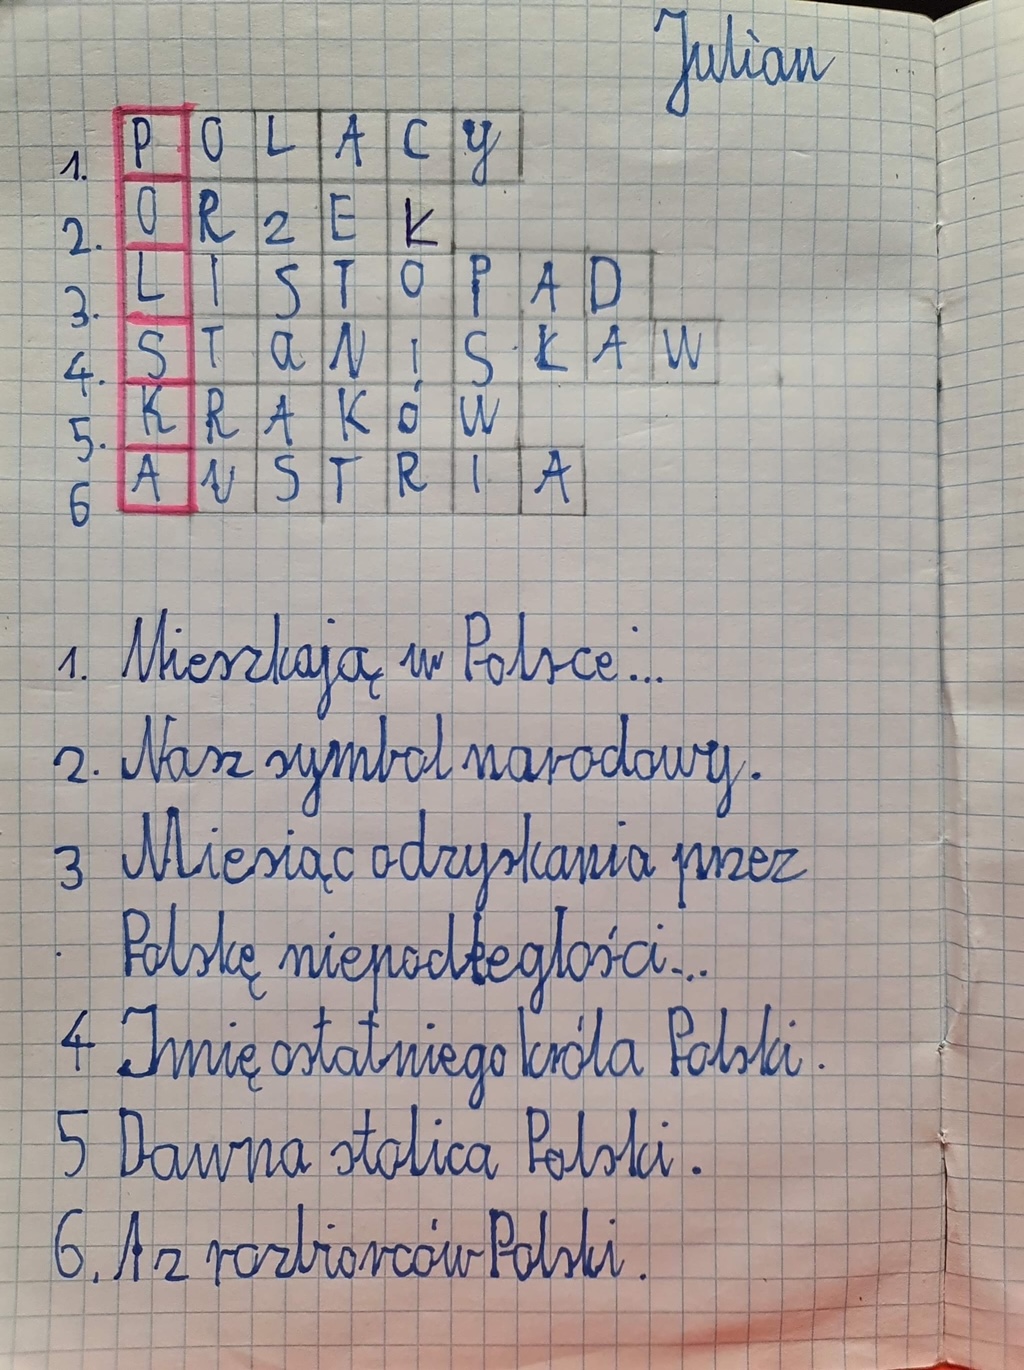 Julian
1. POLACY
2. ORZEK
3. LISTOPAD
4. STaNISŁAW
5. KRAKÓW
6 AUSTRIA
1. Mieszkają w Polsce...
2. Nasz symbol narodowy.
3 Miesiąc odzyskania przez
Polskę niepodłegłości...
4 Imię ostatniego króla Polski.
5 Dawna stolica Polski.
6. A z rozbiorców Polski.